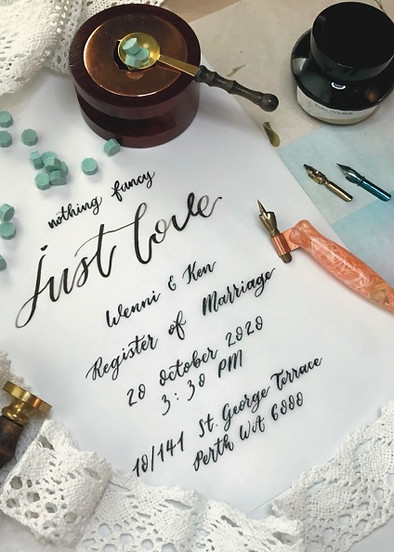 nothing fancy
just love
Wenni & Ken
Register of Marriage
20 October 2020
3:30 PM
10/141 St. George Terrace
Perth WA 6000